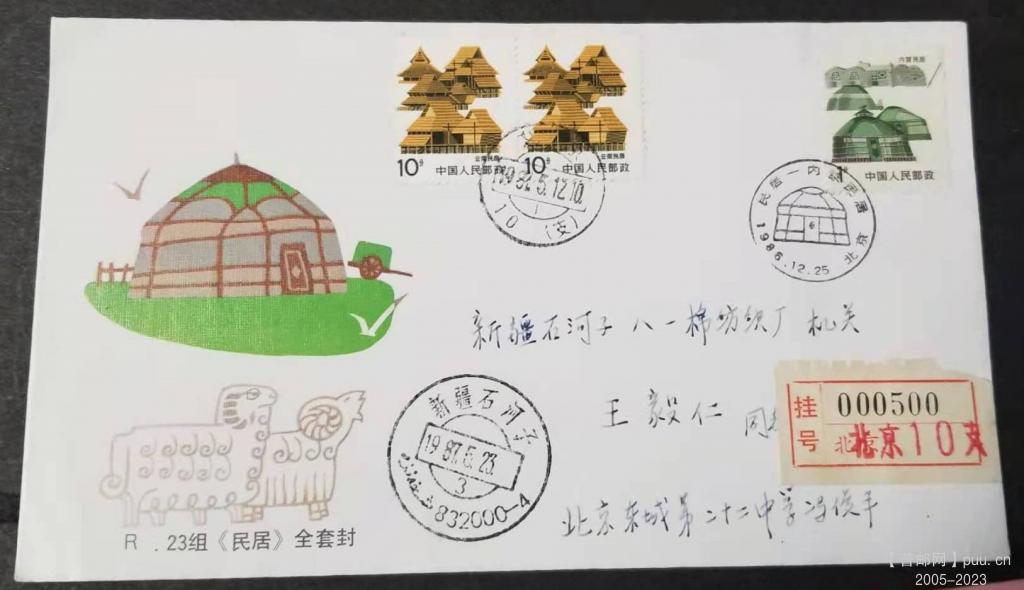 云南民居
10分 中国人民邮政
云南民居
10分 中国人民邮政
内蒙民居
1分 中国人民邮政
1987.5.12.10
1
10(支)
民居一内蒙民居
1986.12.25 北京
新疆石河子八一棉纺织厂 机关
王毅仁 同志
挂号
000500
北京10支
新疆石河子
1987.5.23.
3
832000-4
北京东城第二十二中学冯俊平
R .23组《民居》全套封
【首邮网】puu.cn
2005-2023